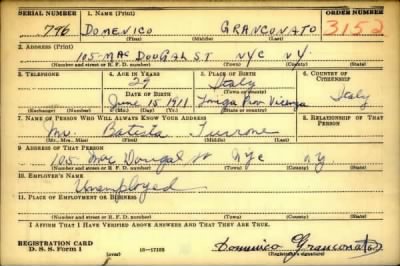 SERIAL NUMBER 1. NAME (Print) ORDER NUMBER
776 DOMENICO GRANCONATO 3152
(First) (Middle) (Last)
2. ADDRESS (Print)
105 MAC DOUGAL ST NYC NY.
(Number and street or R. F. D. number) (Town) (County) (State)
3. TELEPHONE 4. AGE IN YEARS 5. PLACE OF BIRTH 6. COUNTRY OF CITIZENSHIP
29 Italy
DATE OF BIRTH (Town or county)
June 15 1911 Vicenza Italy
(Exchange) (Number) (Mo.) (Day) (Yr.) (State or country)
7. NAME OF PERSON WHO WILL ALWAYS KNOW YOUR ADDRESS 8. RELATIONSHIP OF THAT PERSON
Mr. Batista Turrone
(Mr., Mrs., Miss) (First) (Middle) (Last)
9. ADDRESS OF THAT PERSON
105 Mac Dougal st NYC NY
(Number and street or R. F. D. number) (Town) (County) (State)
10. EMPLOYER'S NAME
Unemployed
11. PLACE OF EMPLOYMENT OR BUSINESS
(Number and street or R. F. D. number) (Town) (County) (State)
I AFFIRM THAT I HAVE VERIFIED ABOVE ANSWERS AND THAT THEY ARE TRUE.
REGISTRATION CARD
D. S. S. Form 1 (over) 16-17105 Domenico Granconato
(Registrant's signature)